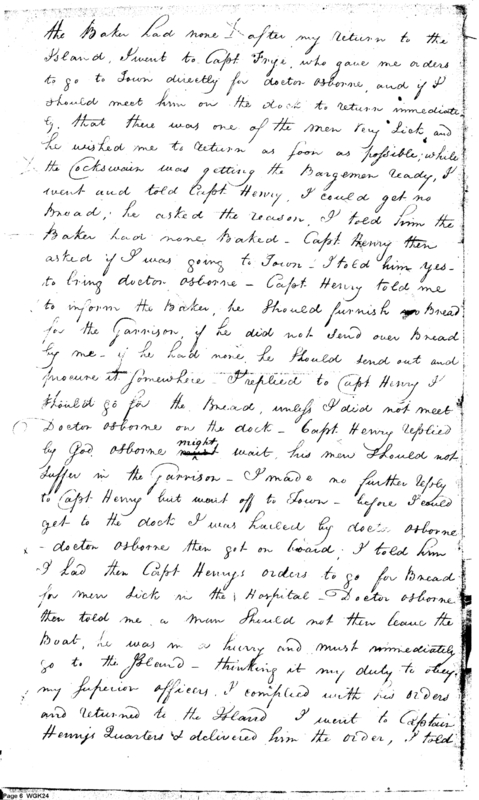 the Baker had none I after my return to the
Island, I went to Capt Frye, who gave me orders
to go to Town directly for doctor osborne, and if I
should meet him on the dock to return immediate
ly, that there was one of the men very sick, and
he wished me to return as soon as possible; while
the Cockswain was getting the Bargemen ready, I
went and told Capt Henry, I could get no
Bread; he asked the reason, I told him the
Baker had none Baked – Capt Henry then
asked if I was going to Town – I told him yes –
to bring doctor osborne – Capt. Henry told me
to inform the Baker, he should furnish Bread
for the Garrison, if he did not send over Bread
by me – if he had none, he should send out and
procure it somewhere – I replied to Capt Henry I
should go for the Bread, unless I did not meet
Doctor osborne on the dock – Capt. Henry replied
by God, osborne might wait, his men should not
suffer in the Garrison – I made no further reply
to Capt Henry but went off to Town – before I could
get to the dock I was hailed by doctr osborne
– doctor osborne then got on board; I told him
I had then Capt Henrys orders to go for Bread
for men sick in the Hospital – Doctor osborne
then told me, a man should not then leave the
Boat, he was in a hurry and must immediately
go to the Island – thinking it my duty to obey
my superior officers, I complied with his orders
and returned to the Island I went to Captain
Henry's Quarters & delivered him the order, I told
Page 6 WGK24